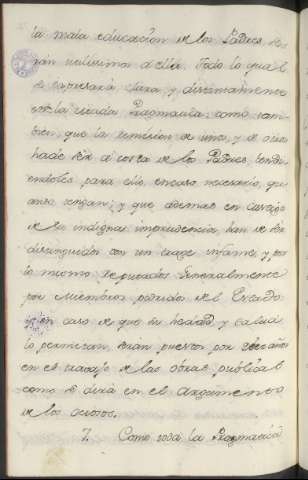 la mala educacion de los Padres se-
ran utilisima a ella. Todo lo qual se
expresará clara, y distintamente
en la citada Pragmatica: como tam-
bien, que la remision de uno, y de otro
hade ser á costa de los Padres, vendi-
endoles para ello, en caso necesario, qu-
anto tengan; y que ademas en castigo
de su indigna imprudencia, han de ser
distinguidos con un trage infame, y por
lo mismo reputados generalmente
por miembros podridos del Estado
y en caso de que su hedad, y salud
lo permitan, seran puestos por años
en el trabajo de las obras publicas
como se dirá en el argumento
de los ociosos.
7. Como toda la Pragmatica